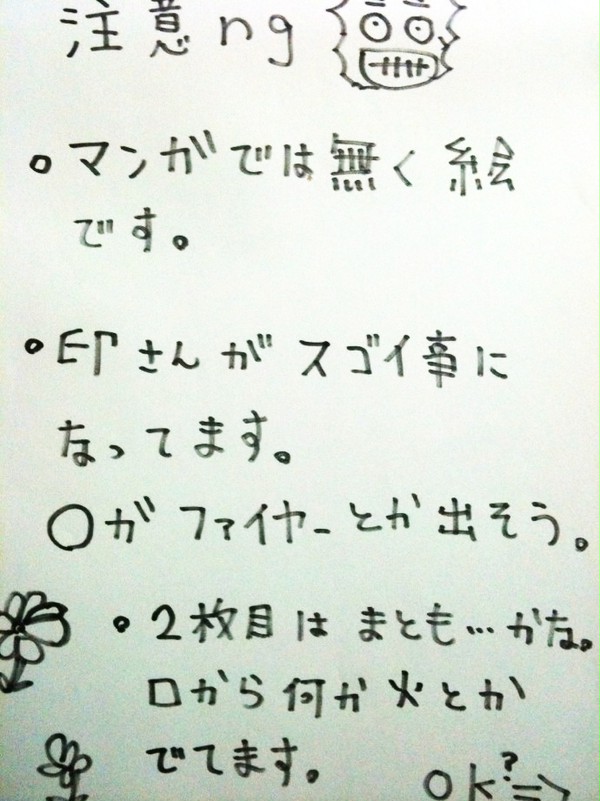 注意ng
・マンガでは無く絵
です。
・印さんがスゴイ事に
なってます。
○がファイヤーとか出そう。
・2枚目はまとも…かな。
口から何か火とか
でてます。
ok?=>